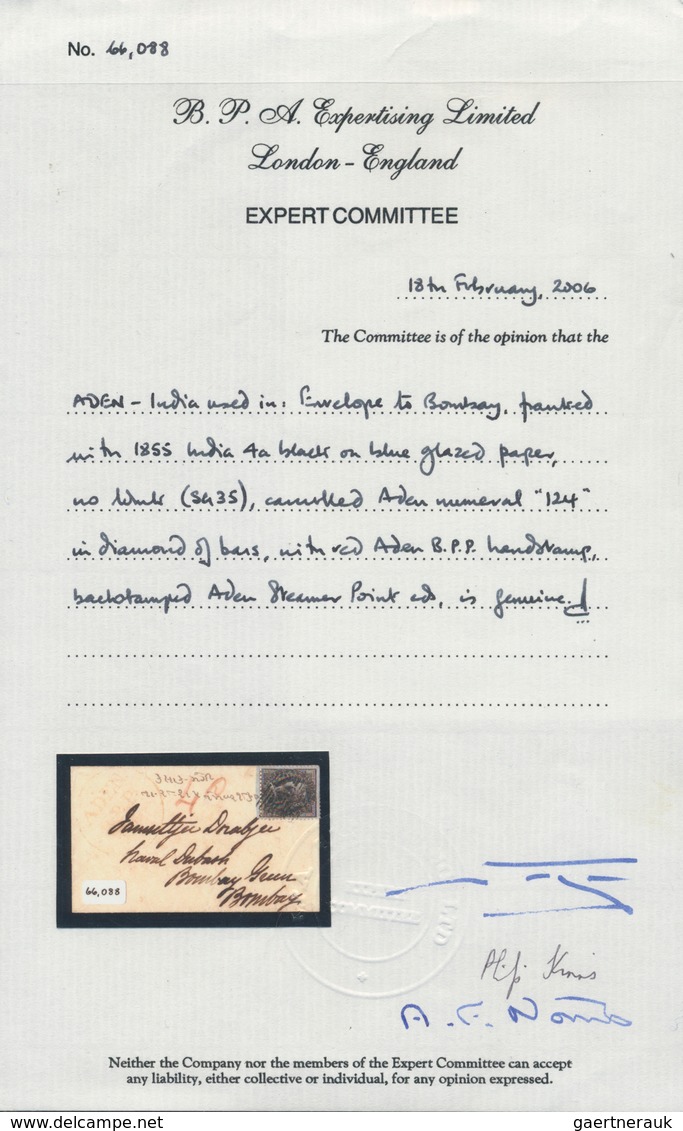 No. 66,088
B. P. A. Expertising Limited
London - England
EXPERT COMMITTEE
18th February, 2006
The Committee is of the opinion that the
ADEN - India used in: Envelope to Bombay, franked
with 1855 India 4a black on blue glazed paper,
no wmk (SG35), cancelled Aden numeral "124"
in diamond of bars, with red Aden B.P.P. handstamp,
backstamped Aden Steamer Point cds, is genuine.
Jamsetjee Dorabjee
Naval Dubash
Bombay Green
Bombay
66,088
A. F. Norris
Neither the Company nor the members of the Expert Committee can accept
any liability, either collective or individual, for any opinion expressed.
www.delcampe.net
gaertnerauk